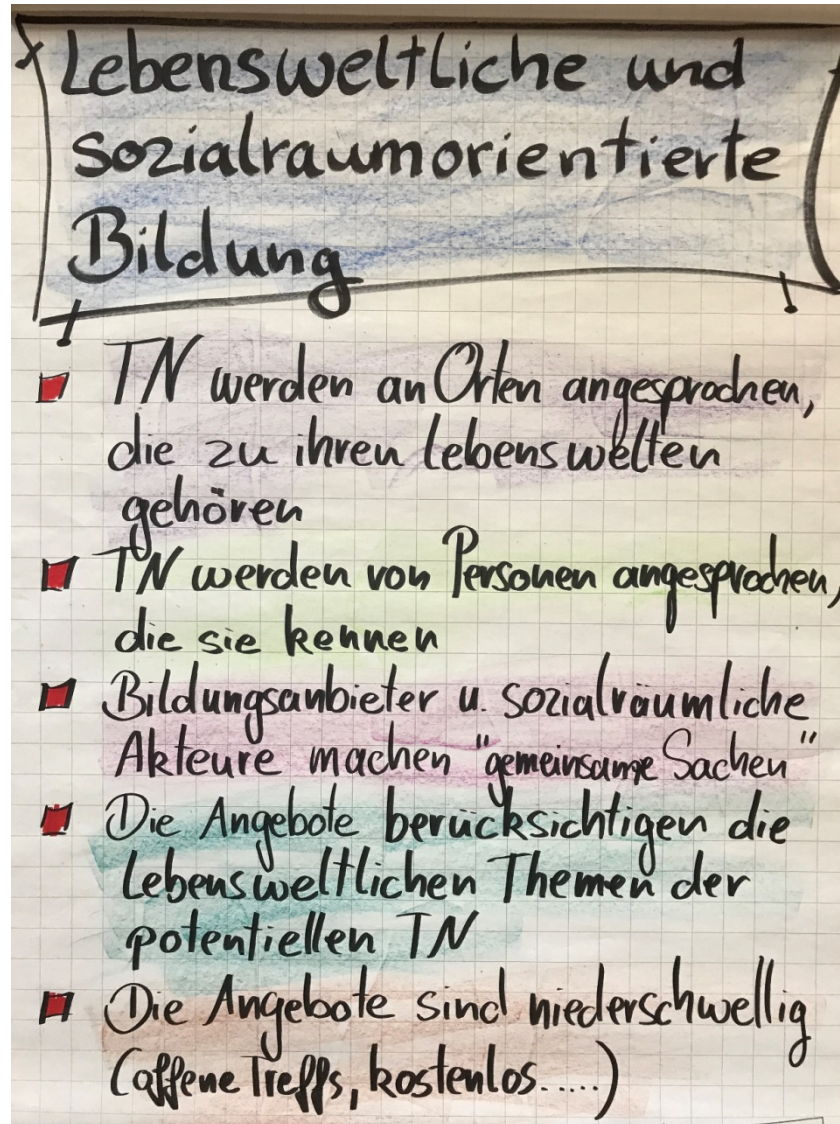 Lebensweltliche und
sozialraumorientierte
Bildung
TN werden an Orten angesprochen,
die zu ihren Lebenswelten
gehören
TN werden von Personen angesprochen,
die sie kennen
Bildungsanbieter u. sozialräumliche
Akteure machen "gemeinsame Sachen"
Die Angebote berücksichtigen die
Lebensweltlichen Themen der
potentiellen TN
Die Angebote sind niederschwellig
(offene Treffs, kostenlos.....)